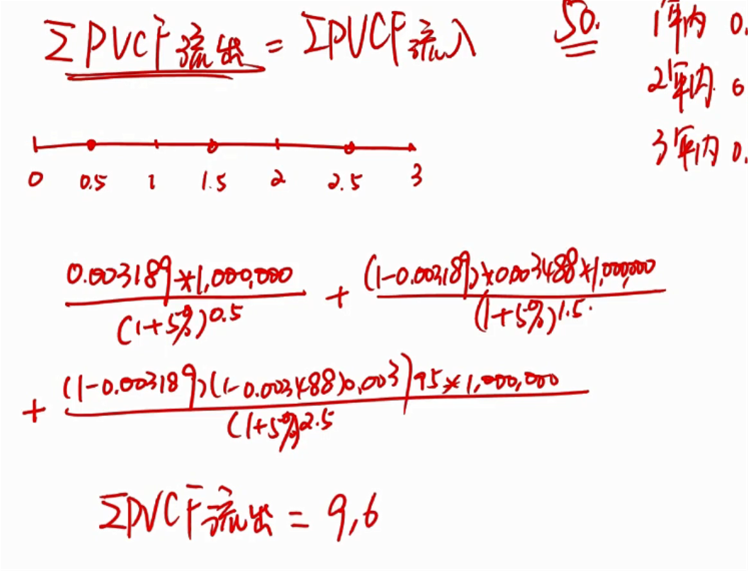 ΣPVCF流出 = ΣPVCF流入
50.
1年内 0.
2年内 0
3年内 0.
0 0.5 1 1.5 2 2.5 3
0.003189*1,000,000 + (1-0.003189)*0.003488*1,000,000
(1+5%)^0.5 (1+5%)^1.5
+ (1-0.003189)(1-0.003488)0.003)95*1,000,000
(1+5%)^2.5
ΣPVCF流出 = 9,6